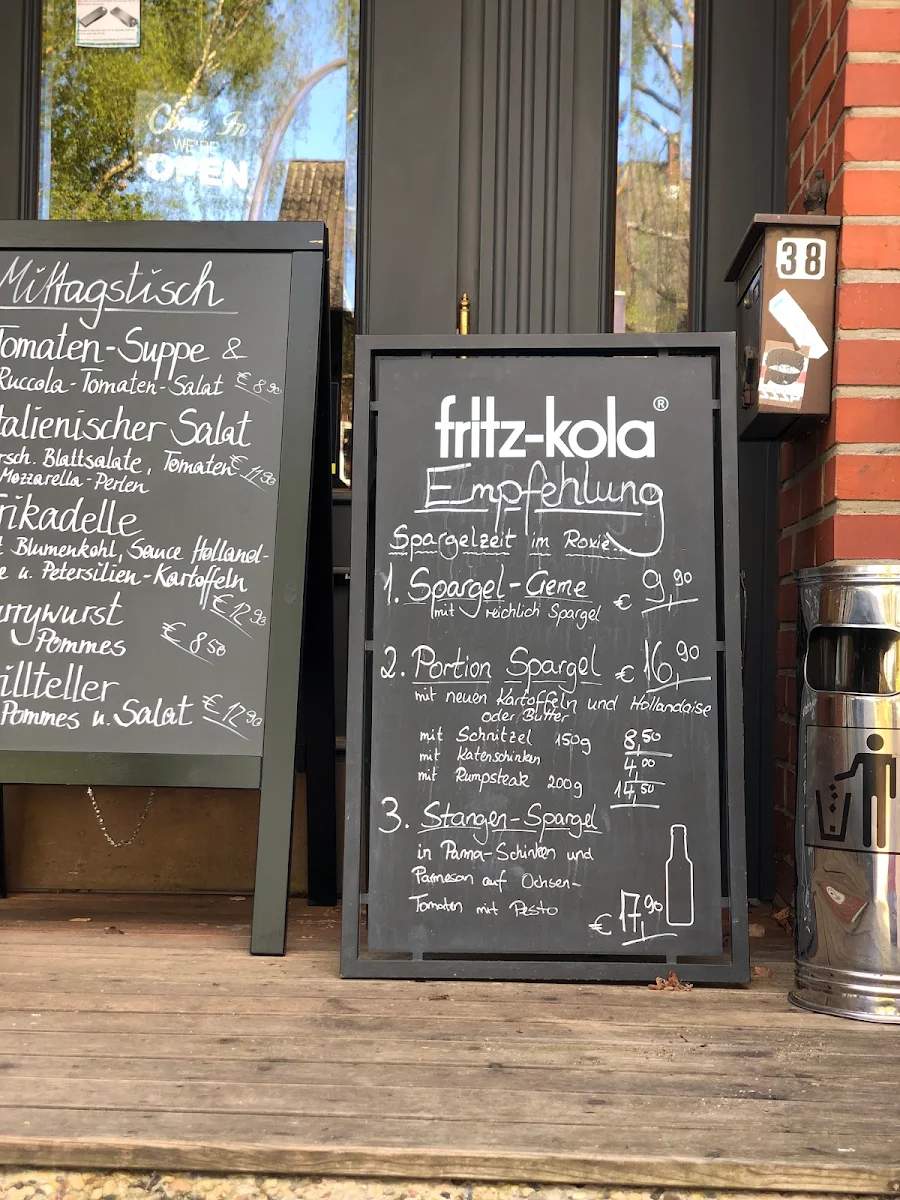 Come In
WE'RE
OPEN
Mittagstisch
Tomaten-Suppe &
Ruccola-Tomaten-Salat € 8,90
talienischer Salat
rsch. Blattsalate, Tomaten € 11,90
Mozzarella-Perlen
rikadelle
t Blumenkohl, Sauce Holland-
e u. Petersilien-Kartoffeln
€ 12,90
urrywurst
Pommes € 8,50
illteller
Pommes u. Salat € 12,90
fritz-kola®
Empfehlung
Spargelzeit im Roxie..
1. Spargel-Creme € 9,90
mit reichlich Spargel
2. Portion Spargel € 16,90
mit neuen Kartoffeln und Hollandaise
oder Butter
mit Schnitzel 150g 8,50
mit Katenschinken 4,00
mit Rumpsteak 200g 14,50
3. Stangen-Spargel
in Parma-Schinken und
Parmesan auf Ochsen-
Tomaten mit Pesto
€ 17,90
38